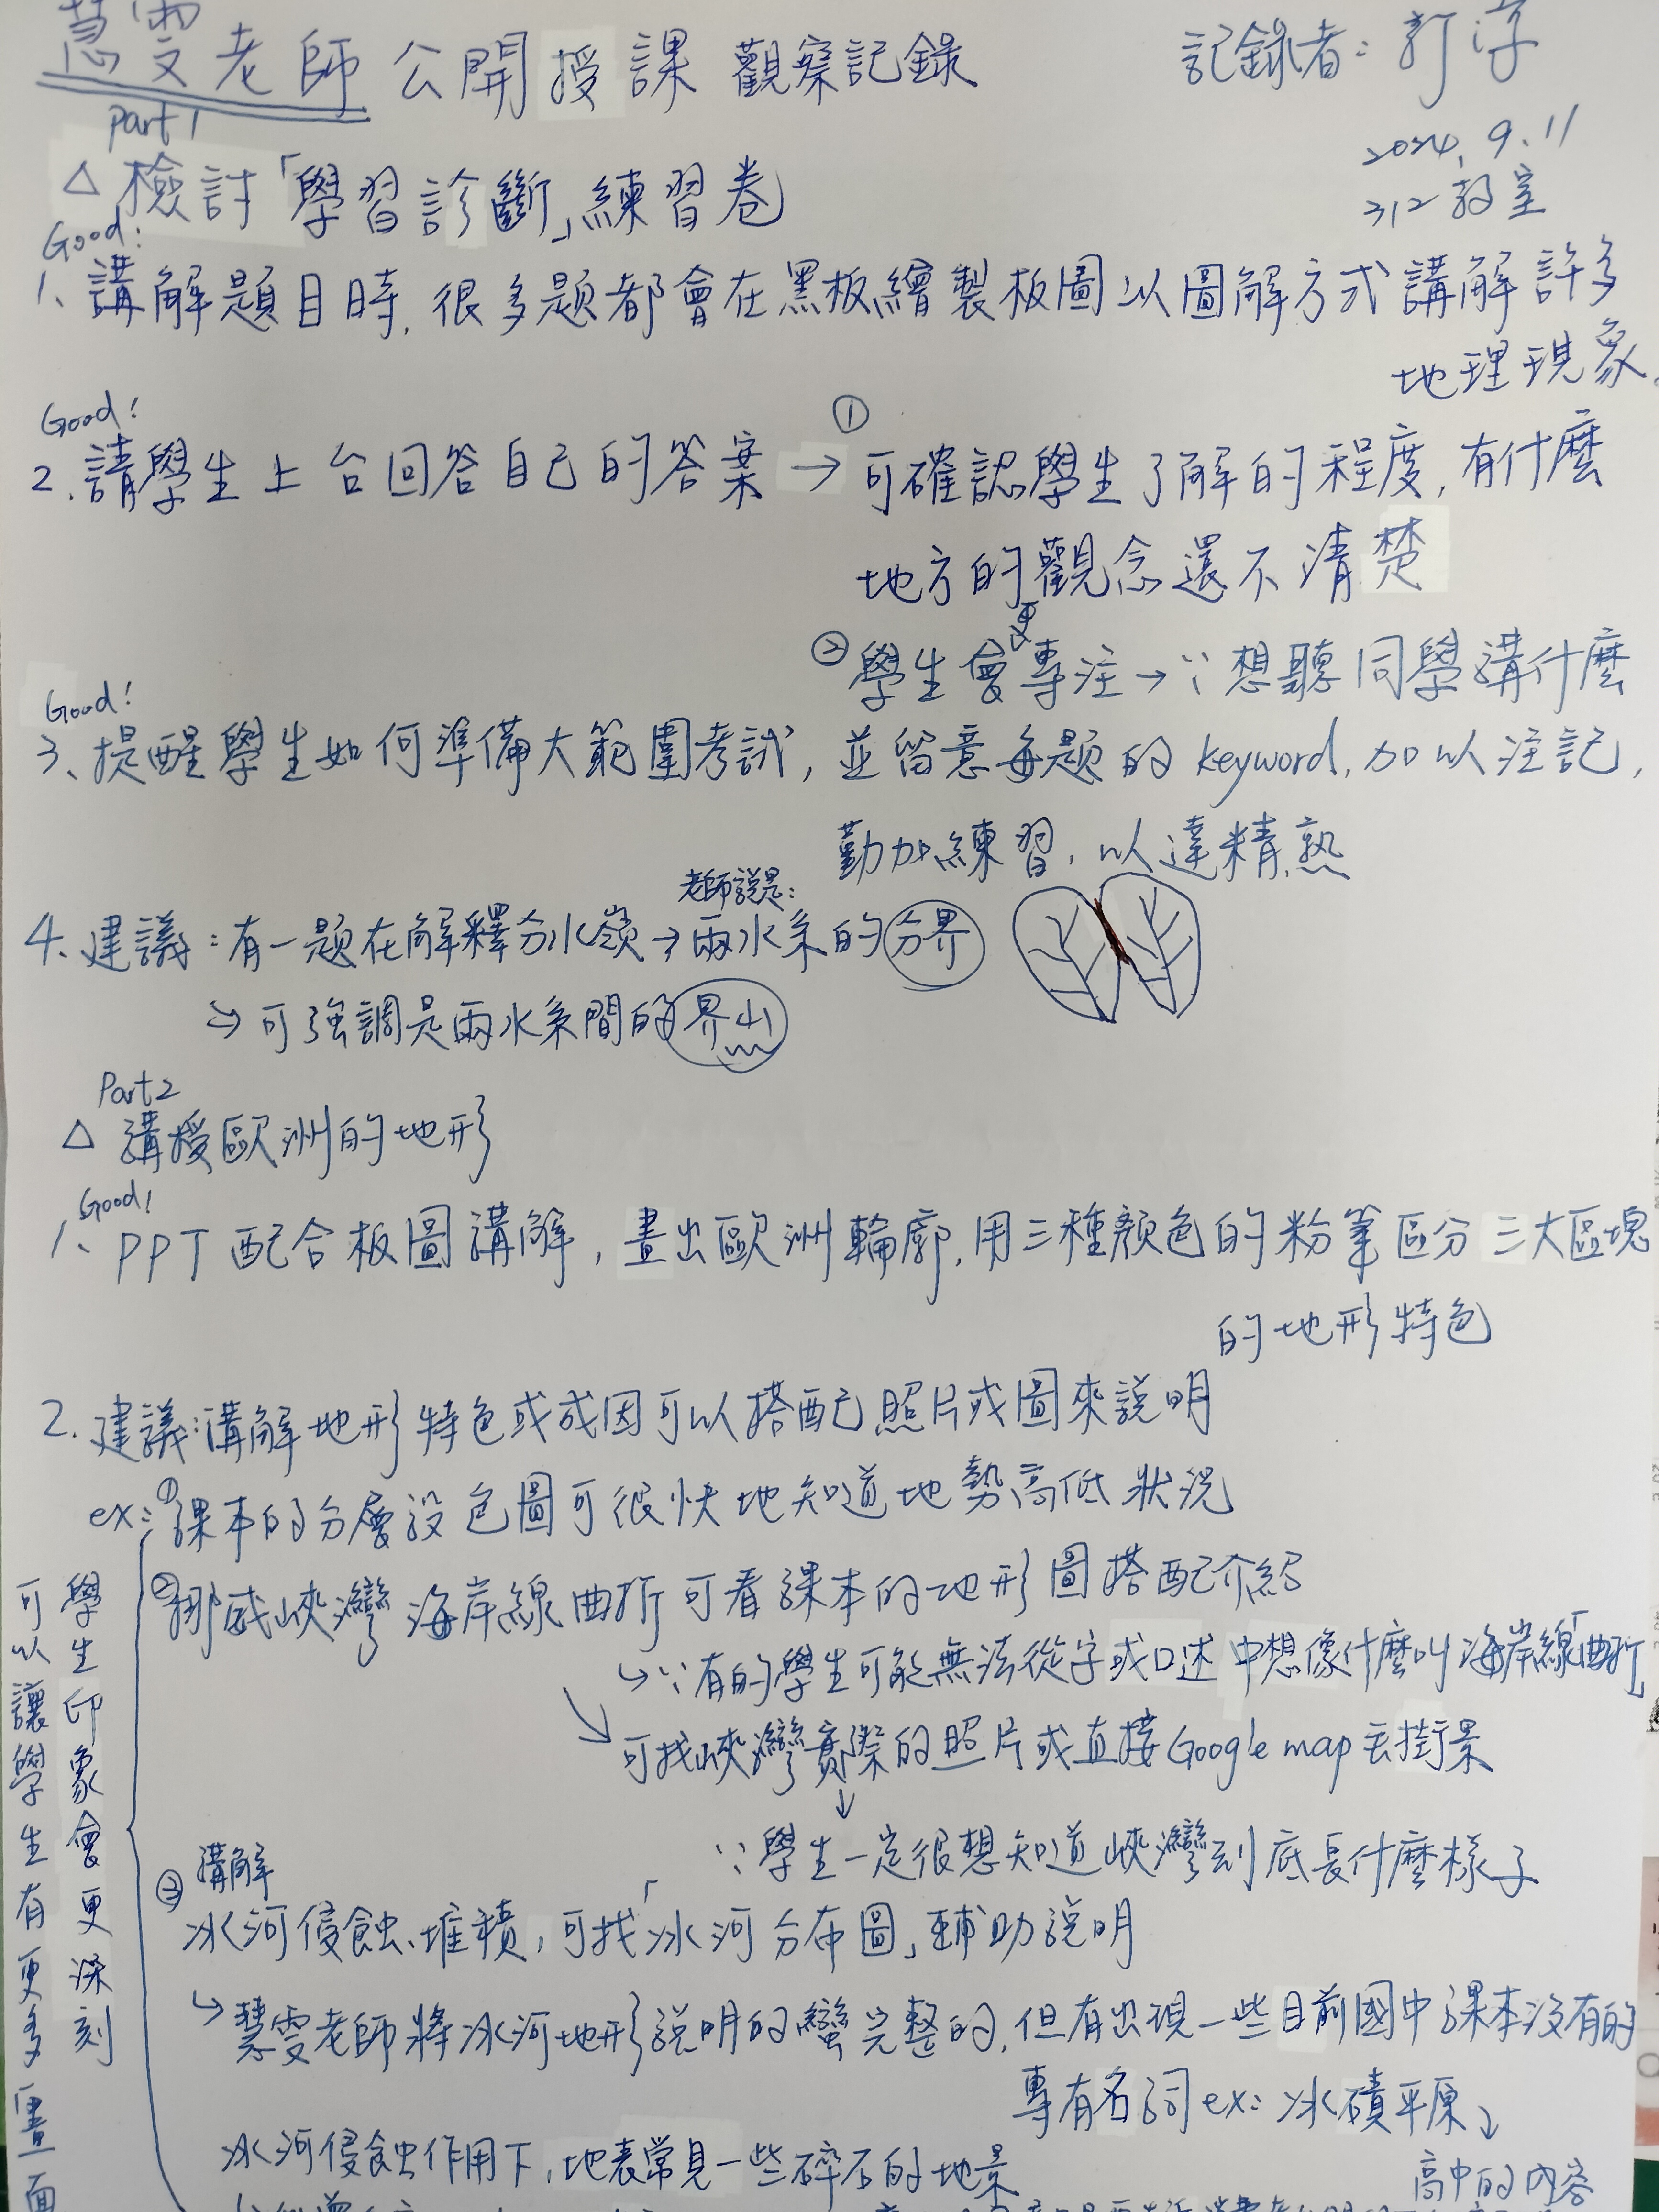 慧雯老師 公開授課 觀察記錄
記錄者：
2024. 9. 11
312 教室
Part 1
△ 檢討「學習診斷」練習卷
Good!
1、講解題目時, 很多題都會在黑板繪製板圖以圖解方式講解許多
地理現象。
Good!
2. 請學生上台回答自己的答案 → ① 可確認學生了解的程度, 有什麼
地方的觀念還不清楚
② 學生會更專注 → ∵想聽同學講什麼
Good!
3、提醒學生如何準備大範圍考試, 並留意每題的 keyword, 加以注記,
勤加練習, 以達精熟
4. 建議：有一題在解釋分水嶺 → 老師說是：兩水系的分界
↳ 可強調是兩水系間的界山
Part 2
△ 講授歐洲的地形
Good!
1、PPT 配合板圖講解, 畫出歐洲輪廓, 用三種顏色的粉筆區分 三大區塊
的地形特色
2. 建議：講解地形特色或成因可以搭配照片或圖來說明
ex：①課本的分層設色圖可很快地知道地勢高低狀況
②挪威峽灣海岸線曲折可看課本的地形圖搭配介紹
↳ ∵有的學生可能無法從字或口述中想像什麼叫海岸線「曲折」
↘ 可找峽灣實際的照片或直接Google map 去街景
↓
∵學生一定很想知道峽灣到底長什麼樣子
③ 講解
冰河侵蝕、堆積, 可找「冰河分布圖」輔助說明
↳ 慧雯老師將冰河地形說明的蠻完整的, 但有出現一些目前國中課本沒有的
專有名詞 ex：冰磧平原↓
高中的內容
冰河侵蝕作用下, 地表常見一些碎石的地景
學生印象會更深刻
可以讓學生有更多「畫面